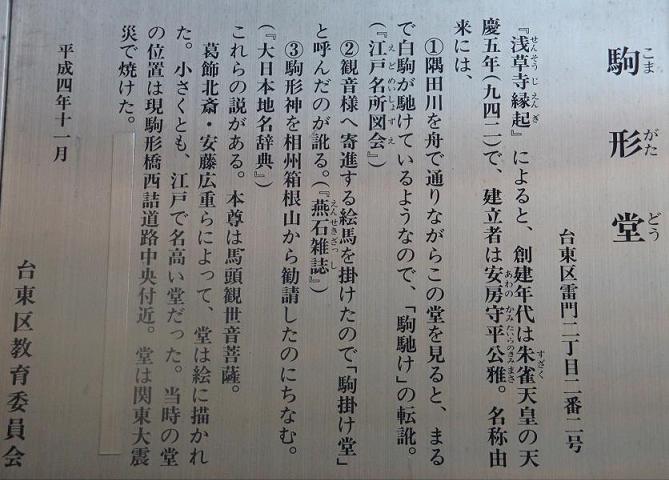 駒形堂
こまがたどう
台東区雷門二丁目二番二号
『浅草寺縁起』によると、創建年代は朱雀天皇の天
せんそうじえんぎ
すざく
慶五年(九四二)で、建立者は安房守平公雅。名称由
あわのかみたいらのきみまさ
来には、
①隅田川を舟で通りながらこの堂を見ると、まる
で白駒が馳けているようなので、「駒馳け」の転訛。
(『江戸名所図会』)
えどめいしょずえ
②観音様へ寄進する絵馬を掛けたので「駒掛け堂」
と呼んだのが訛る。(『燕石雑誌』)
えんせきざっし
③駒形神を相州箱根山から勧請したのにちなむ。
(『大日本地名辞典』)
これらの説がある。本尊は馬頭観世音菩薩。
葛飾北斎・安藤広重らによって、堂は絵に描かれ
た。小さくとも、江戸で名高い堂だった。当時の堂
の位置は現駒形橋西詰道路中央付近。堂は関東大震
災で焼けた。
平成四年十一月
台東区教育委員会